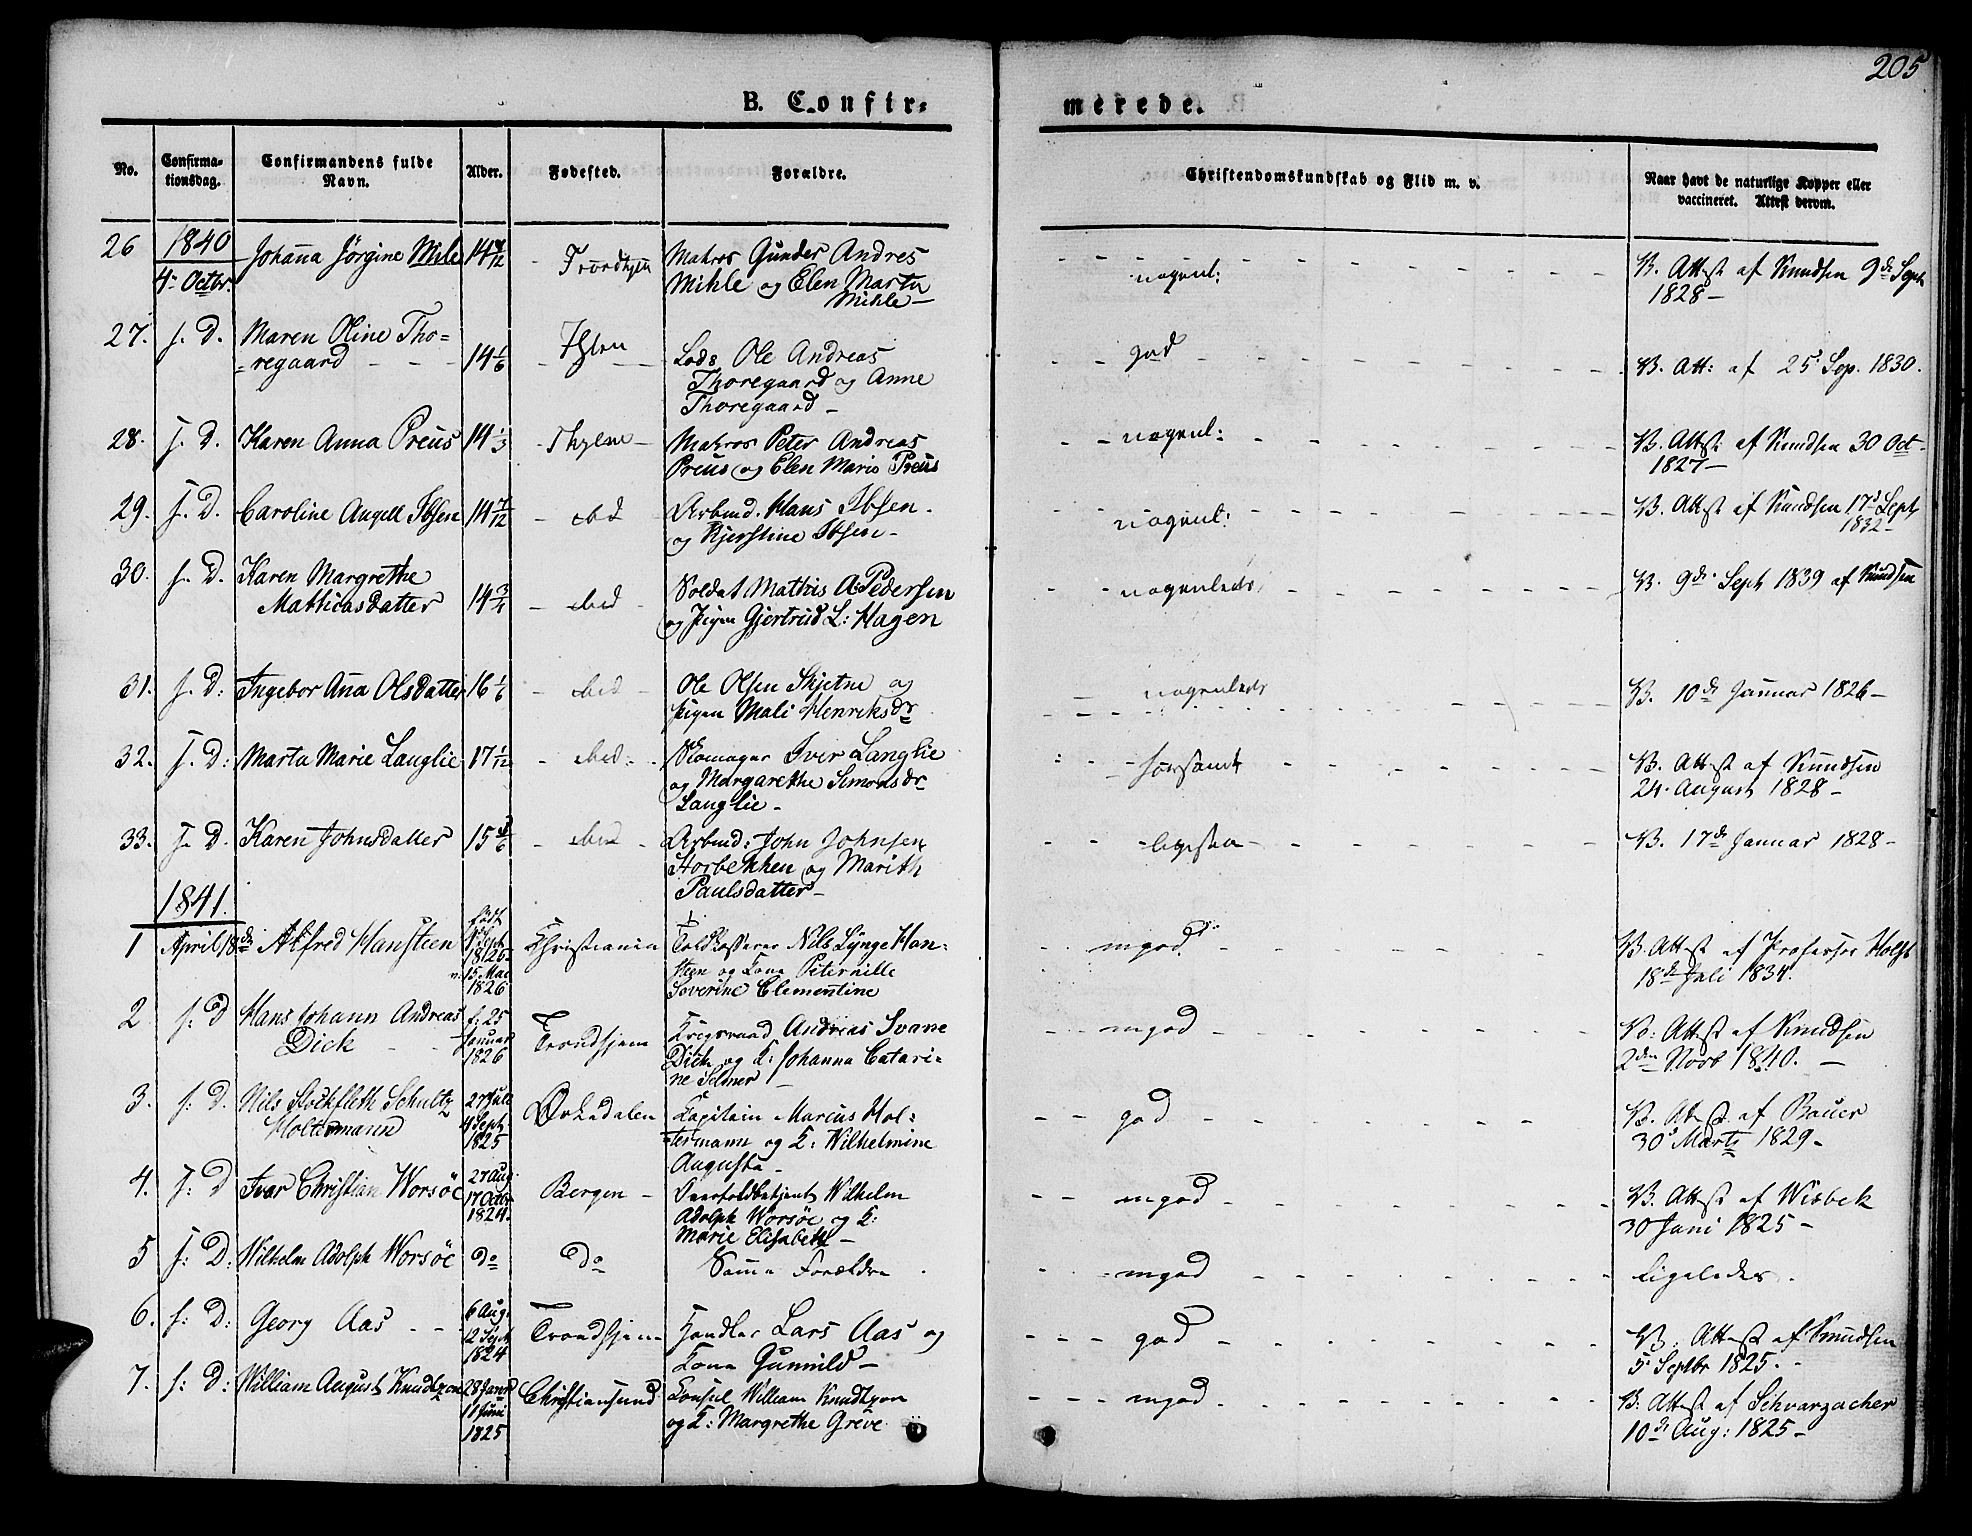 205
B. Confir-
merede.
No.
Confirma-
tionsdag.
Confirmandens fulde
Navn.
Alder.
Fødested.
Forældre.
Christendomskundskab og Flid m. v.
Naar havt de naturlige Kopper eller
vaccineret. Attest derom.
26 1840 Johanna Jörgine Mile 14 Matros Gunder Andres nogenl: V. Attest af Knudsen 9de Sept
4. Octbr. Mihle og Elen Marta 1828 -
Mihle -
27. s. D. Maren Oline Tho= Ihlen god
=regaard 14 1/6 Lods Ole Andreas V. Att: af 25 Sep. 1830.
Thoregaard og Anne
Thoregaard -
28. s. D. Karen Anna Preus 14 1/3 Matros Peter Andreas nogenl: V. Attest af Knudsen 30 Oct
Preus og Elen Marie Preus 1827 -
29. s. D. Caroline Angell Ibsen 14 7/12 - ibid Arbmd. Hans Ibsen nogenl: V. Attest af Knudsen 17d Sept
og Kjerstine Ibsen - 1832 -
30. s. D. Karen Margrethe Soldat Mathis A: Pedersen nogenleds V. 9de Sept 1839 af Knudsen
Matthiasdatter 14 3/4 - ibid - og Pigen Gjertrud L: Hagen
31. s. D: Ingebor Ana Olsdatter 16 1/6 - ibid - Ole Olsen Skjetne og nogenleds V. 10de Januar 1826 -
Pigen Mali Henriksdr
32. s. D: Marta Marie Langlie 17 1/12 - ibid - Skomager Iver Langlie V. Attest af Knudsen
og Margarethe Simonsdr 24. August 1828 -
Langlie -
33. s. D. Karen Johnsdatter 15 5/6 - ibid - Arbmd: John Johnsen ligesaa V. 17de Januar 1828 -
Storbekken og Marith
Paulsdatter -
1841.
1 April 18de Alfred Hansteen født Christiania Toldkasserer Nils Lynge Han- mgod V. Attest af Professor Holst
1826 15 Mai 1826 steen og Kona Peternille 18de Juli 1834.
Severine Clementine
2 s: D Hans Johann Andreas f: 25 Krigsraad Andreas Svane mgod V: Attest af Knudsen
Dick Januar 1826 Trondhjem Dick og K: Johanna Catari- 2den Novb 1840. -
ne Selmer
3. s: D. Nils Stockfleth Schultz 27 Juli Orkedalen Kapitain Marcus Hol- god V. Attest af Bauer
Holtermann 4 Sept 1825 termann og K: Wilhelmine 30 Marts 1829 -
Augusta -
4. s: D Ivar Christian Worsöe 27 Aug Bergen - Overtoldbetjent Wilhelm mgod V. Attest af Wisbek
17 Octbr 1824. Adolph Worsöe og K: 30 Juni 1825 -
Marie Elisabeth -
5 s: D: Wilhelm Adolph Worsöe do Do Samme Forældre mgod ligeledes
6. s: D: Georg Aas 6 Aug. Trondhjem Handler Lars Aas og god V. Attest af Knudsen
12 Sept 1824 Kona Gunnild - 5 Septbr 1825.
7. s: D: William August Knudtzon 28 Janr Christiansund Consul William Knudtzon mgod V. Attest af Schvarzacher
11 Juni 1825 og K: Margrethe Greve 10de Aug: 1825 -